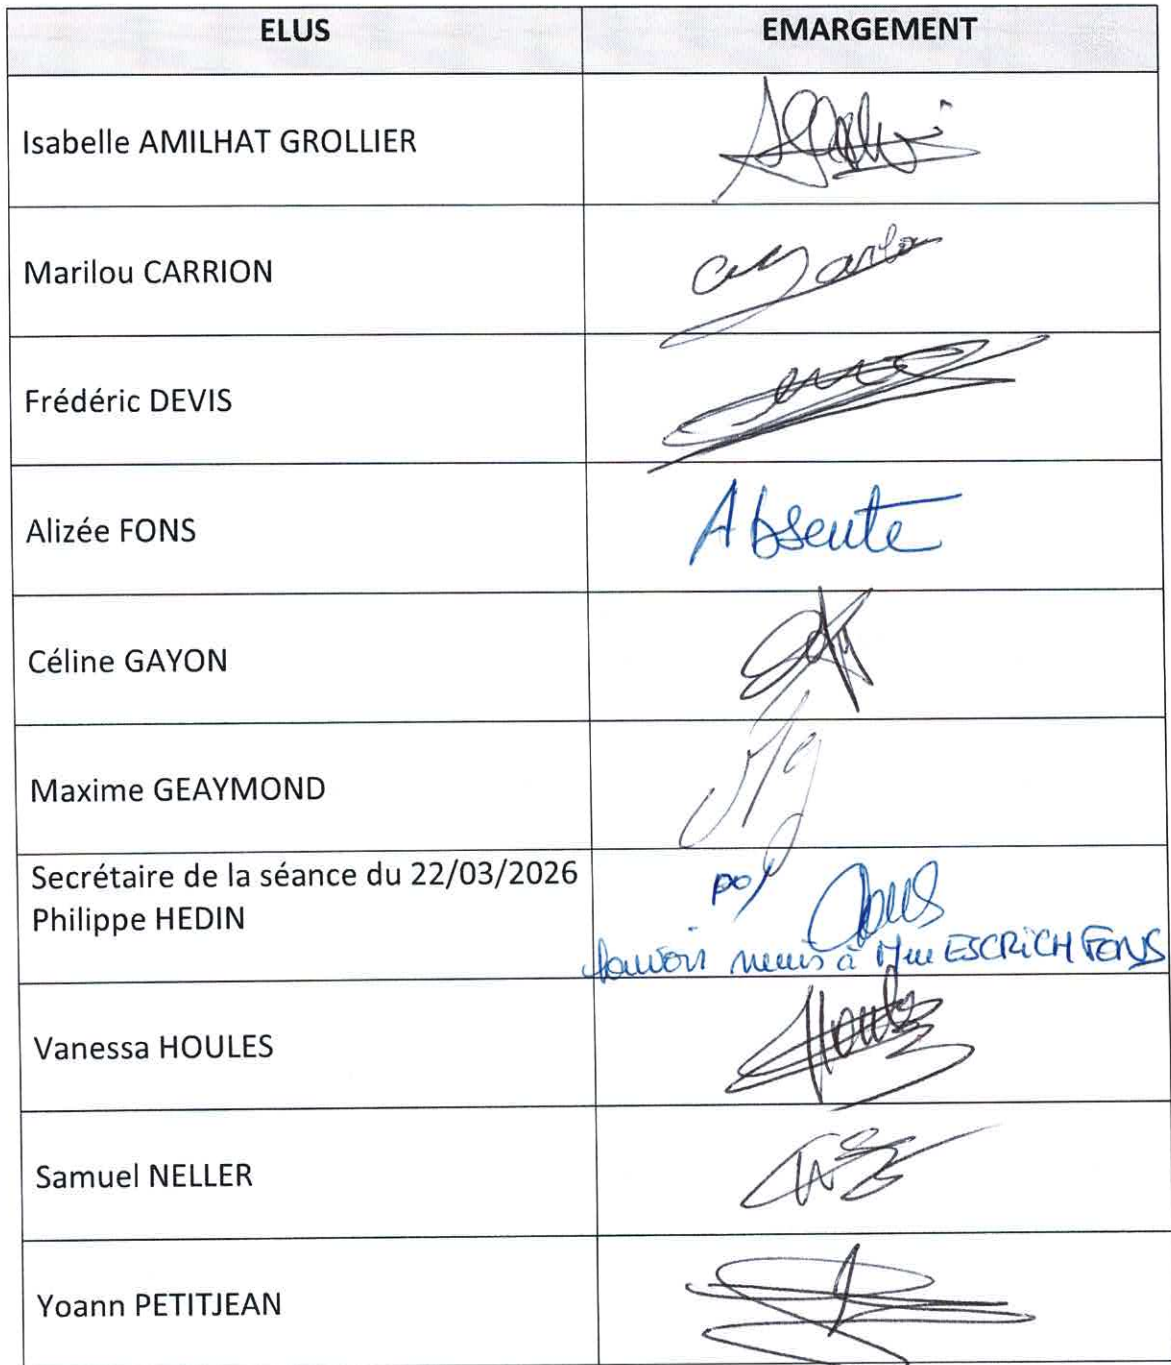 ELUS EMARGEMENT
Isabelle AMILHAT GROLLIER
Marilou CARRION
Frédéric DEVIS
Alizée FONS Absente
Céline GAYON
Maxime GEAYMOND
Secrétaire de la séance du 22/03/2026
Philippe HEDIN
à Mme ESCRICH FONS
Vanessa HOULES
Samuel NELLER
Yoann PETITJEAN